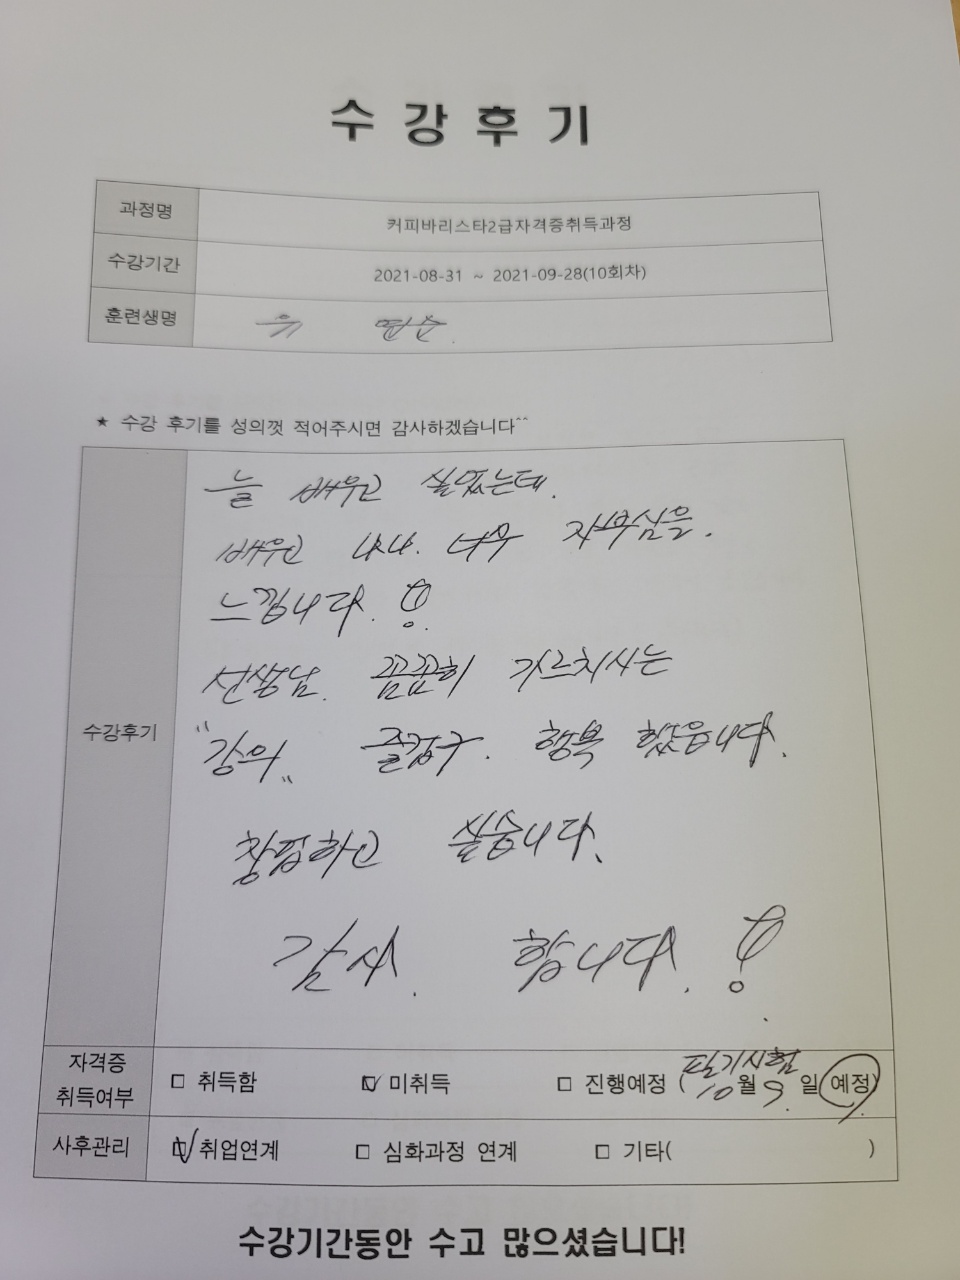 수강후기
과정명 커피바리스타2급자격증취득과정
수강기간 2021-08-31 ~ 2021-09-28(10회차)
훈련생명 유 연순
★ 수강 후기를 성의껏 적어주시면 감사하겠습니다^^
수강후기
늘 배우고 싶었는데.
배우고 나니. 너무 자부심을.
느낍니다. !
선생님. 꼼꼼히 가르치시는
"강의" 즐겁구. 행복 했습니다.
창업하고 싶습니다.
감사. 합니다. !
자격증 취득여부 □ 취득함 ☑ 미취득 □ 진행예정 (필기시험 10월 9일 예정)
사후관리 ☑ 취업연계 □ 심화과정 연계 □ 기타( )
수강기간동안 수고 많으셨습니다!